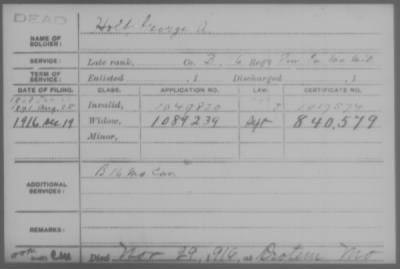 DEAD
NAME OF SOLDIER: Holt George A.
SERVICE: Late rank, Co. B, 6 Reg't Prov. En. Mo. Mil.
TERM OF SERVICE: Enlisted , 1 Discharged , 1
DATE OF FILING. CLASS. APPLICATION NO. LAW. CERTIFICATE NO.
1891 Aug. Invalid, 1049820
1916 Dec 19 Widow, 1089239 Sept 840,579
Minor,
ADDITIONAL SERVICES: B 16 Mo Cav.
REMARKS:
Died Nov 29, 1916, at Protem Mo